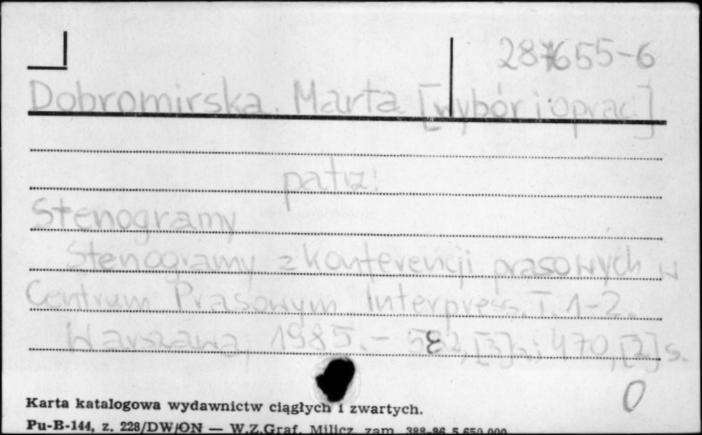 287655-6
Dobromirska Marta [wybór i oprac]
patrz:
Stenogramy
Stenogramy z konferencji prasowych w
Centrum Prasowym Interpress. T. 1-2.
Warszawa, 1985. - 582, [3] s.; 470, [2] s.
0
Karta katalogowa wydawnictw ciągłych i zwartych.
Pu-B-144, z. 228/DW/ON — W.Z.Graf. Milicz zam. 388-86 5.650.000